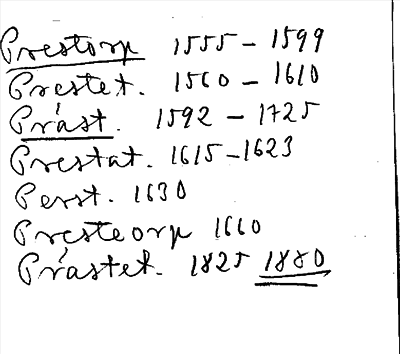 Prestorp 1555 - 1599
Prestet. 1560 - 1610
Prást. 1592 - 1725
Prestat. 1615-1623
Perst. 1630
Presteorp 1660
Prástet. 1825 1880